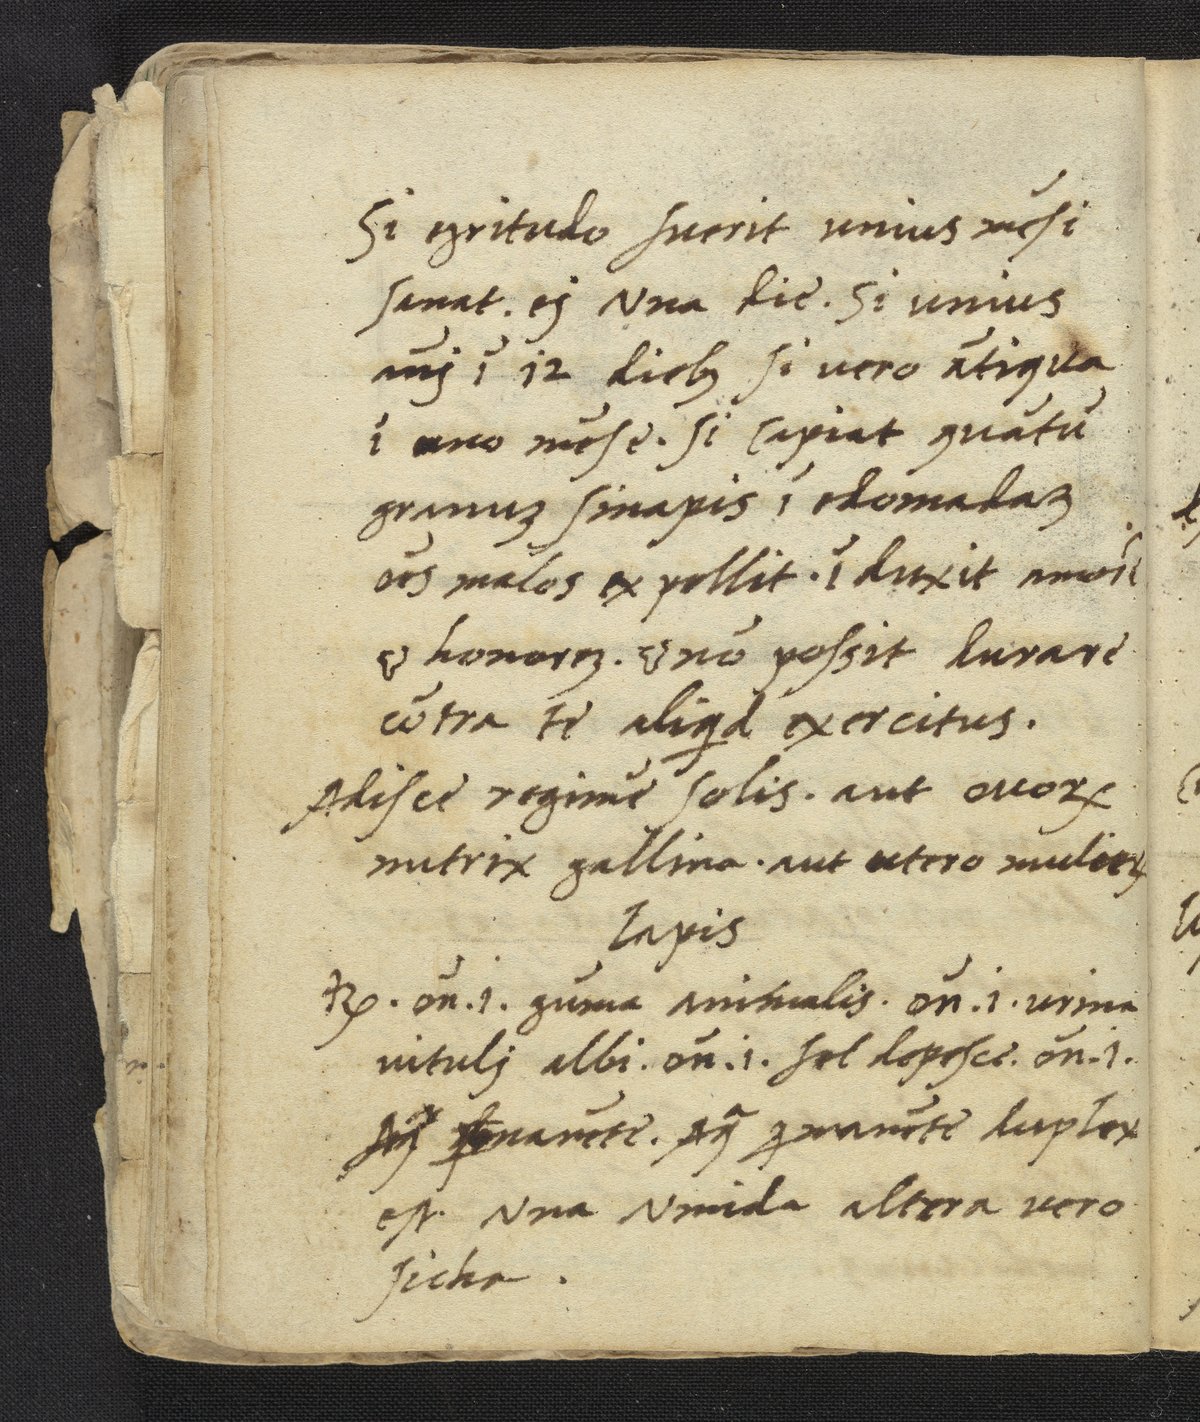 Si egritudo fuerit unius mēsi
sanat. ej Vna die. Si unius
anñj ī 12 dieb3 si vero ātiqua
ī uno mēse. Si capiat quātū
granu3 sinapis ī edomada3
oēs malos expellit. īduxit amorē
& honore3. & nō possit durare
cōtra te aliqd exercitus.
Adisce regimē solis. aut ouorꝝ
nutrix gallina. aut utero mulierꝝ
Lapis
℞. on̄.1. gūma animalis. on̄.1. urina
uitulj albi. on̄.1. sol deposce. on̄.1.
Aqᵃ ꝑmanēte. Aqᵃ ꝑmanēte duplex
est. Vna Vmida altera vero
sicha.